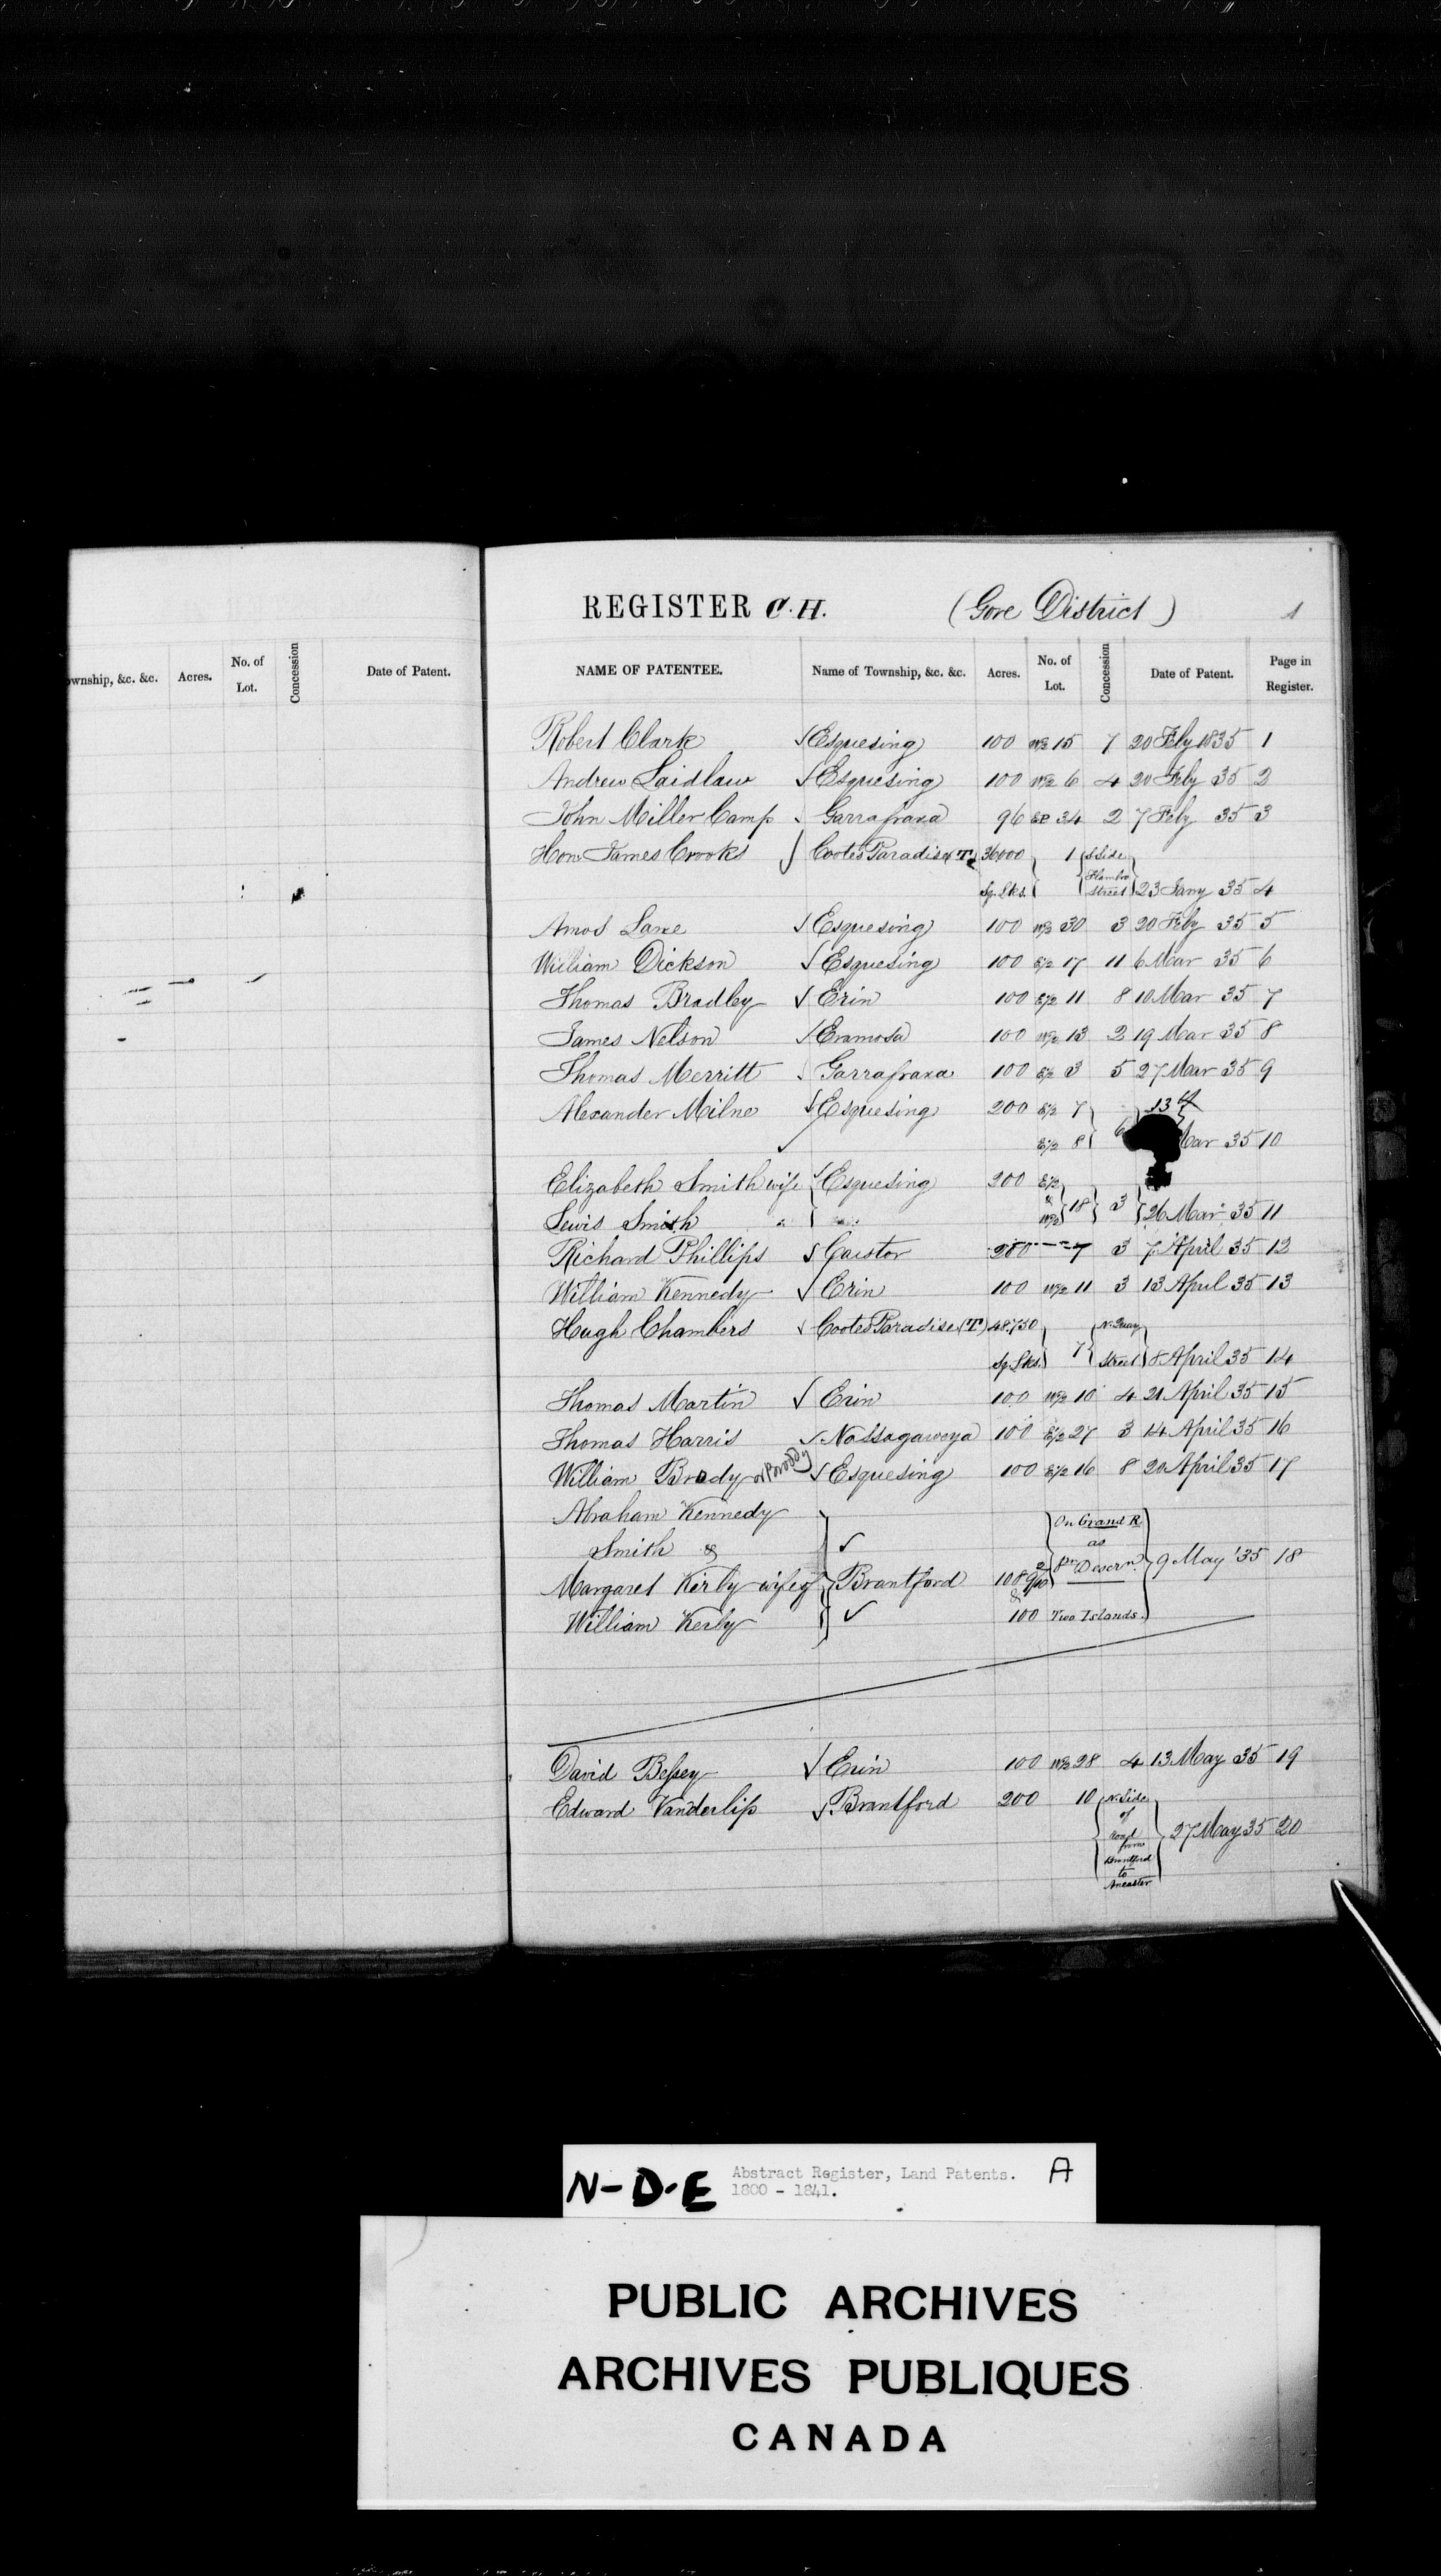 ownship, &c. &c. Acres. No. of Lot. Concession Date of Patent.
REGISTER C. H. (Gore District) 1
NAME OF PATENTEE. Name of Township, &c. &c. Acres. No. of Lot. Concession Date of Patent. Page in Register.
Robert Clark √ Esquesing 100 W½ 15 7 20 Feby 1835 1
Andrew Laidlaw √ Esquesing 100 W½ 6 4 20 Feby 35 2
John Miller Camp Garrafraxa 96 34 2 7 Feby 35 3
Hon James Crooks Cootes Paradise (T) 36000 1 S. Side
Sq. Lks. Flamboro Street 23 Jany 35 4
Amos Lane √ Esquesing 100 W½ 30 3 20 Feby 35 5
William Dickson √ Esquesing 100 E½ 17 11 6 Mar 35 6
Thomas Bradley √ Erin 100 E½ 11 8 10 Mar 35 7
James Nelson √ Eramosa 100 W½ 13 2 19 Mar 35 8
Thomas Merritt Garrafraxa 100 E½ 3 5 27 Mar 35 9
Alexander Milne √ Esquesing 200 E½ 7 13th
E½ 8 6 Mar 35 10
Elizabeth Smith wife √ Esquesing 200 E½
Lewis Smith & W½ 18 3 26 Mar 35 11
Richard Phillips √ Caistor 200 7 3 7 April 35 12
William Kennedy √ Erin 100 W½ 11 3 13 April 35 13
Hugh Chambers √ Cootes Paradise (T) 48,750 N. Quay
Sq. Lks. 7 Street 8 April 35 14
Thomas Martin √ Erin 100 W½ 10 4 21 April 35 15
Thomas Harris √ Nassagaweya 100 E½ 27 3 14 April 35 16
William Brody or Broddy √ Esquesing 100 E½ 16 8 20 April 35 17
Abraham Kennedy On Grand R.
Smith & √ as
Margaret Kerby wife of Brantford 108 9/10 pr. Descrn. 9 May '35 18
William Kerby √ & 100 Two Islands.
David Bessey √ Erin 100 W½ 28 4 13 May 35 19
Edward Vanderlip √ Brantford 200 10 N. Side
of
Road
from 27 May 35 20
Brantford
to
Ancaster
N-D-E Abstract Register, Land Patents. A
1800 - 1841.
PUBLIC ARCHIVES
ARCHIVES PUBLIQUES
CANADA